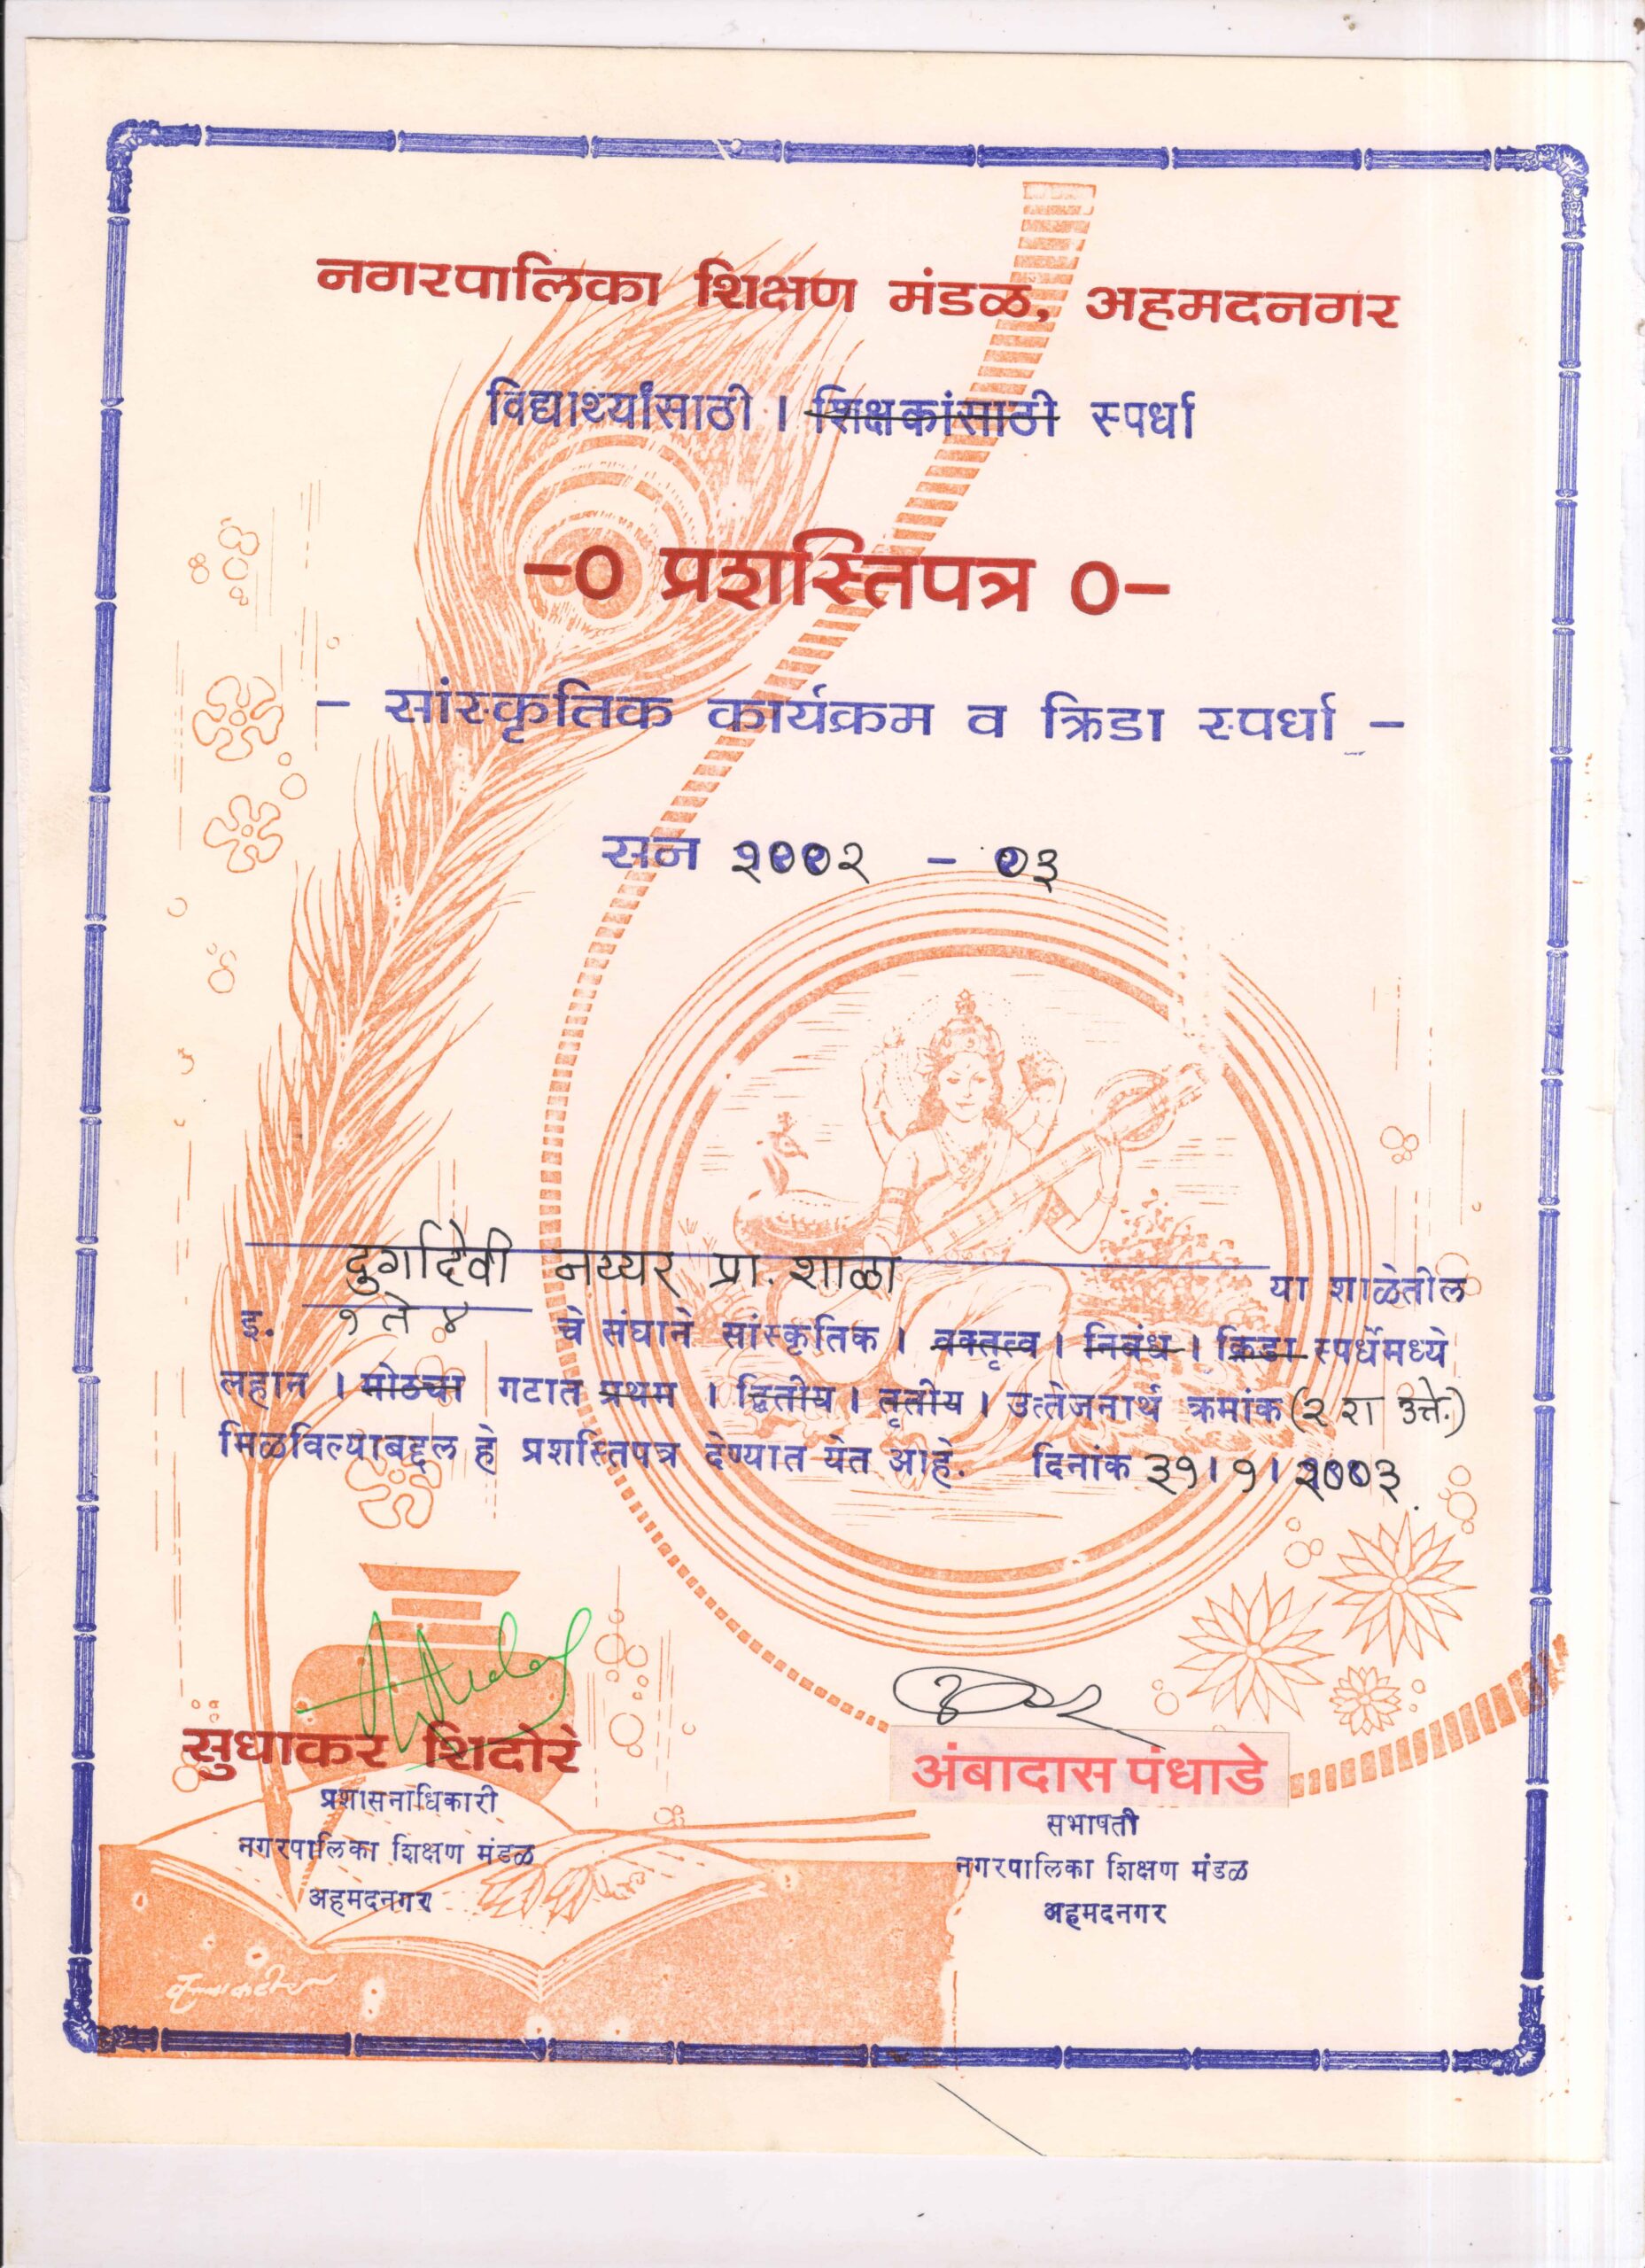 नगरपालिका शिक्षण मंडळ, अहमदनगर
विद्यार्थ्यांसाठी । शिक्षकांसाठी स्पर्धा
-0 प्रशस्तिपत्र 0-
- सांस्कृतिक कार्यक्रम व क्रिडा स्पर्धा -
सन २००२ - ०३
दुर्गादेवी नय्यर प्रा. शाळा या शाळेतील
इ. १ ते ४ चे संघाने सांस्कृतिक । वक्तृत्व । निबंध । क्रिडा स्पर्धेमध्ये
लहान । मोठ्या गटात प्रथम । द्वितीय । तृतीय । उत्तेजनार्थ क्रमांक (२ रा उत्ते.)
मिळविल्याबद्दल हे प्रशस्तिपत्र देण्यात येत आहे. दिनांक ३१।१।२००३.
सुधाकर शिदोरे
प्रशासनाधिकारी
नगरपालिका शिक्षण मंडळ
अहमदनगर
अंबादास पंधाडे
सभापती
नगरपालिका शिक्षण मंडळ
अहमदनगर